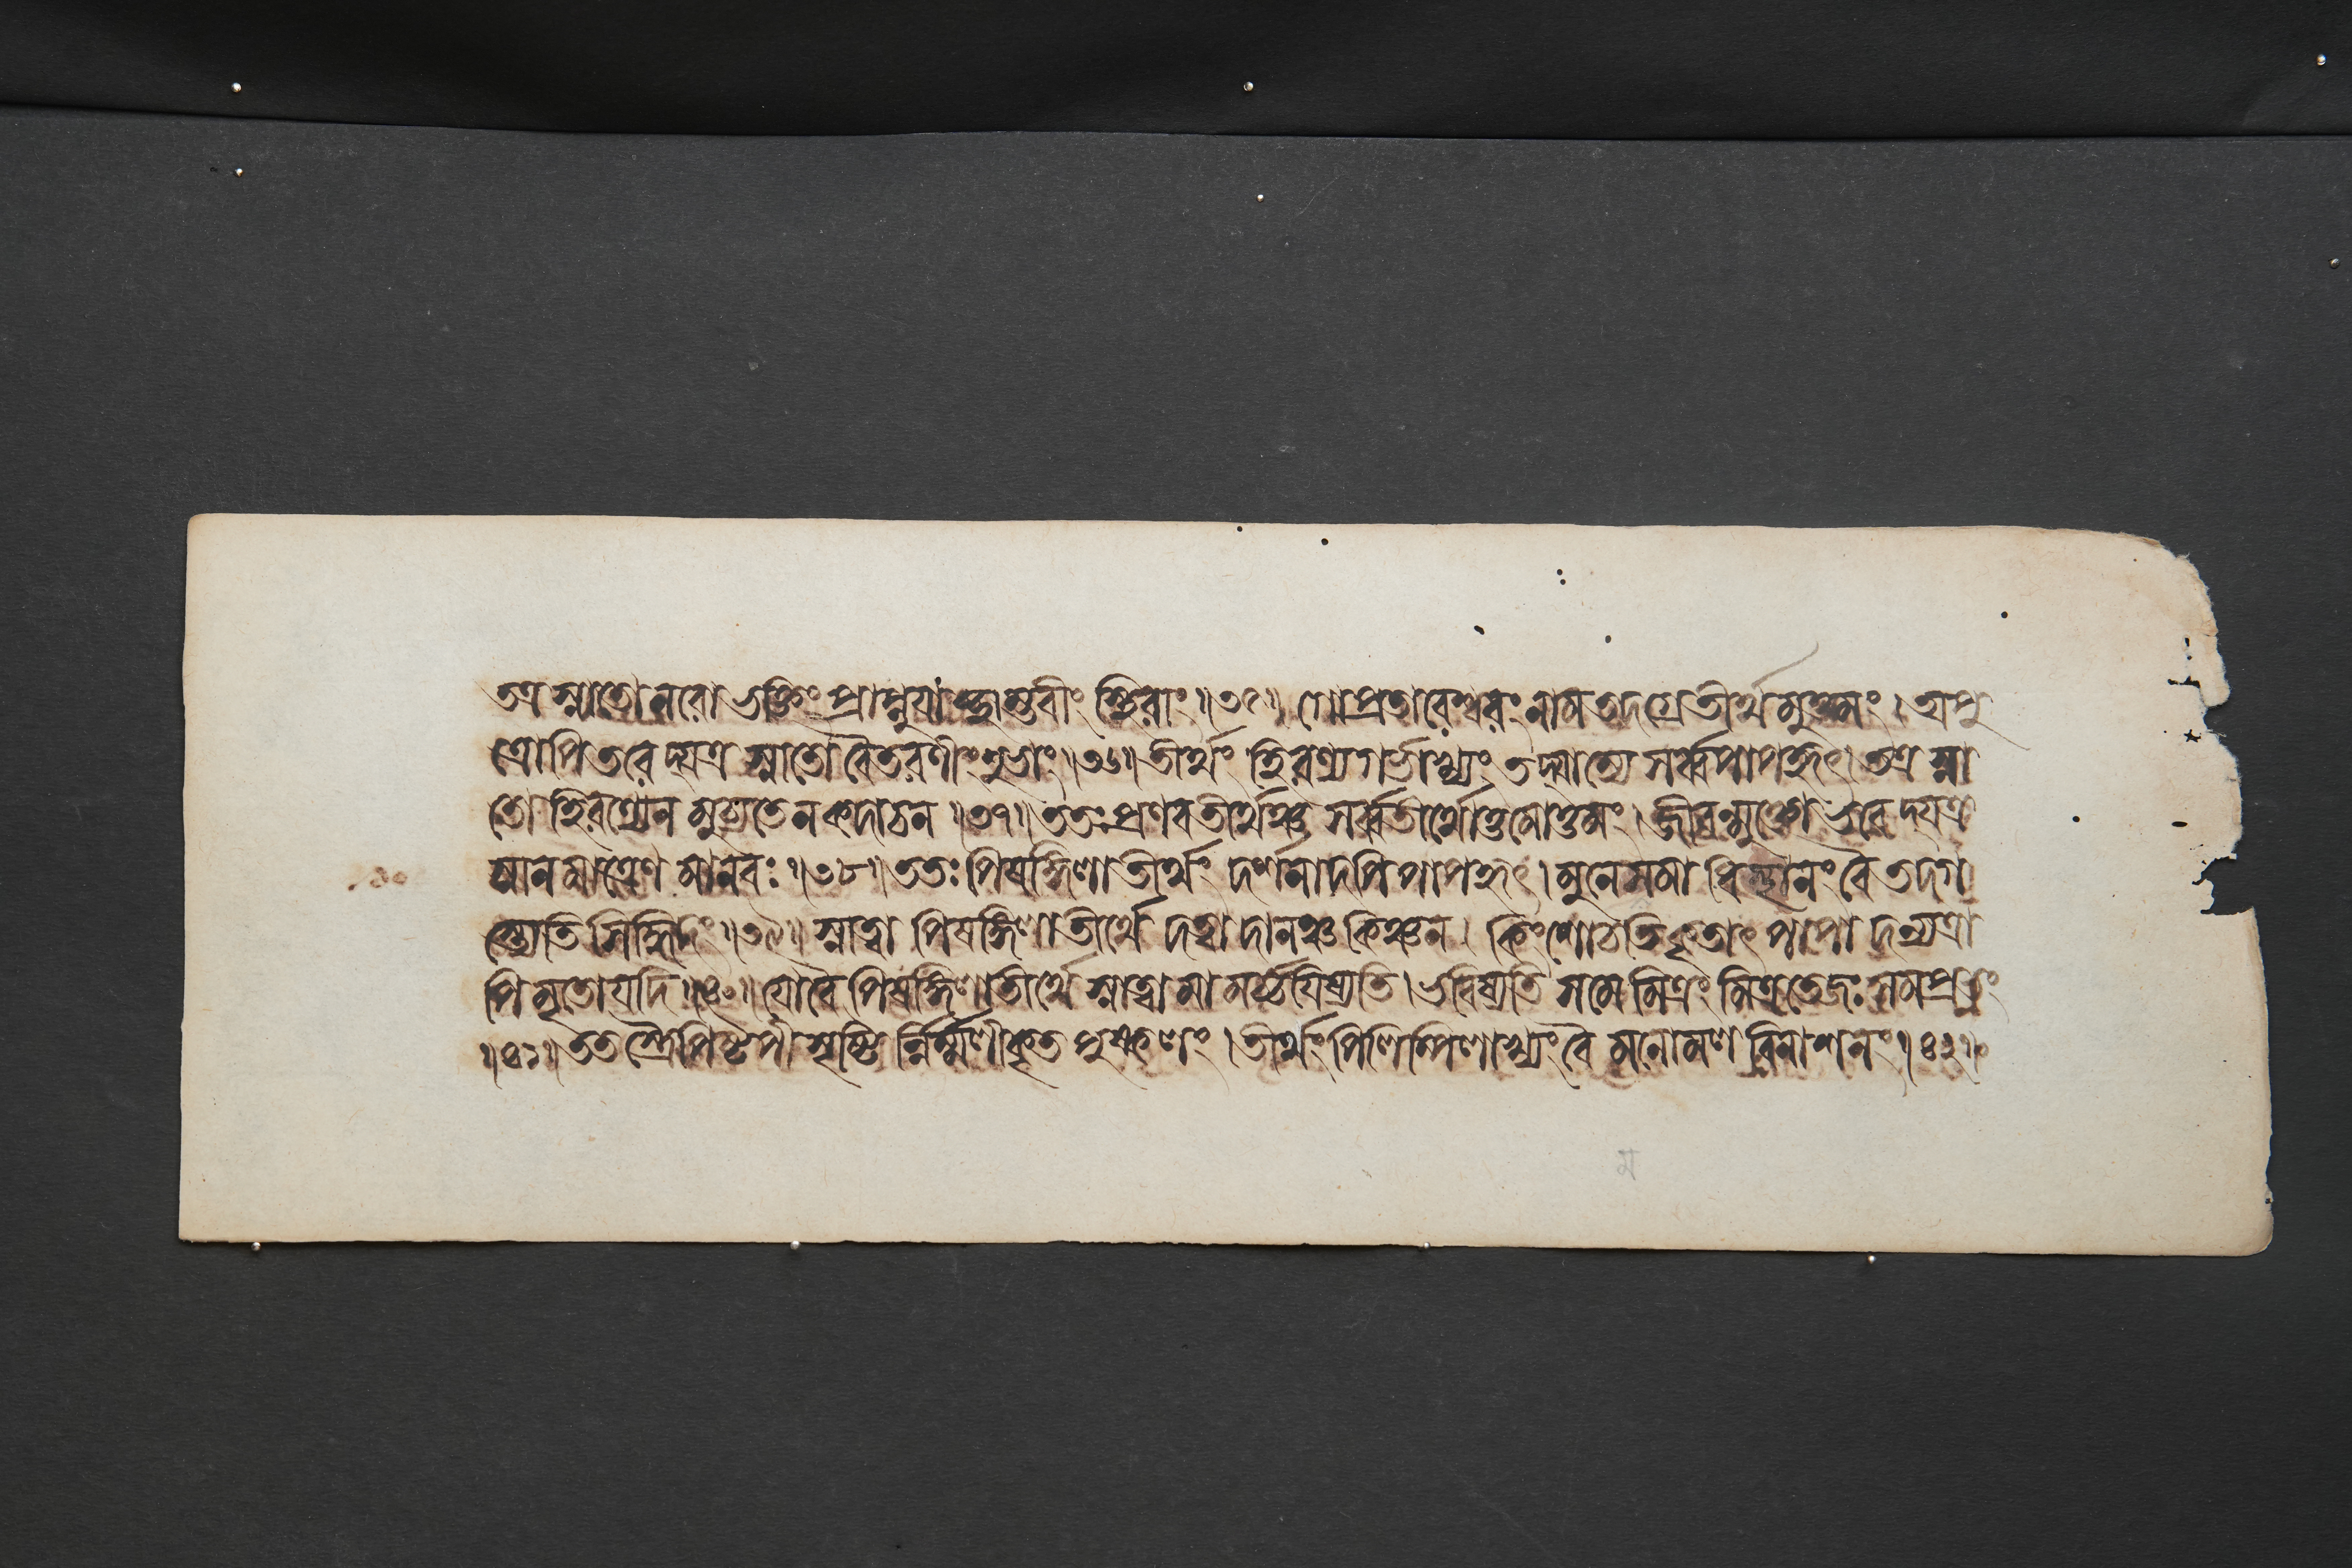 তত্র স্নাতো নরো ভক্তিং প্রাপ্নুযাচ্ছাম্ভবীং স্থিরাং ॥৩৫॥ গোপ্রতারেশ্বরং নাম তদগ্রে তীর্থমুত্তমং । অপু
ত্রোপি তরেদ্যত্র স্নাতো বৈতরণীং সুখং ॥৩৬॥ তীর্থং হিরণ্যগর্ভাখ্যং তদ্যাম্যে সর্ব্বপাপহৃৎ । তত্র স্না
তো হিরণ্যেন মুচ্যতে ন কদাচন ॥৩৭॥ ততঃ প্রণবতীর্থঞ্চ সর্ব্বতীর্থোত্তমোত্তমং । জীবন্মুক্তো ভবেদ্যত্র
স্নানমাত্রেণ মানবঃ ॥৩৮॥ ততঃ পিষঙ্গিলাতীর্থং দর্শনাদপি পাপহৃৎ । মুনে মমাধিষ্ঠানং বৈ তদগ
স্ত্যেতি সিদ্ধিদং ॥৩৯॥ স্নাত্বা পিষঙ্গিলাতীর্থে দত্বা দানঞ্চ কিঞ্চন । কিং শোচতি কৃতাৎ পাপাদন্যত্রা
পি মৃতো যদি ॥৪০॥ যো বৈ পিষঙ্গিলাতীর্থে স্নাত্বা মামর্চ্চযিষ্যতি । ভবিষ্যতি স মে মিত্রং মিত্রতেজঃ সমপ্রভং
॥৪১॥ ততস্ত্রৈপিষ্টপী দৃষ্টির্ন্নির্ম্মলীকৃত পুষ্করং । তীর্থং পিলিপ্পিলাখ্যং বৈ মনোমলবিনাশনং ॥৪২॥